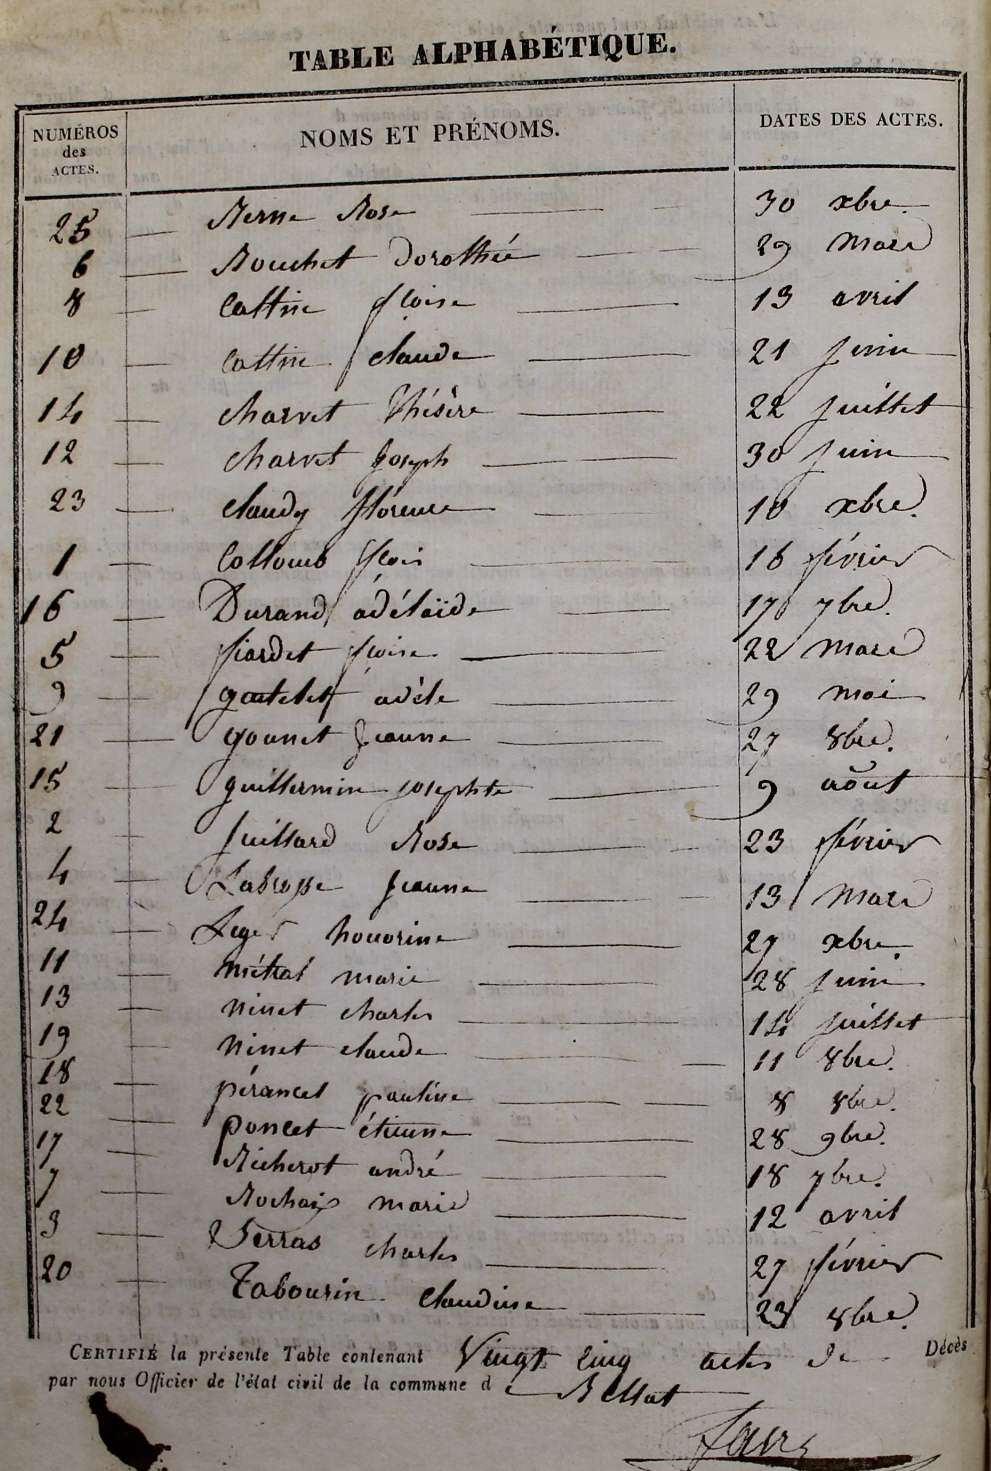 TABLE ALPHABÉTIQUE.
NUMÉROS des ACTES. NOMS ET PRÉNOMS. DATES DES ACTES.
25 Rose 30 xbre.
6 Dorothée 29 Mars
8 Cattin fçoise 13 avril
10 Cattin claude 21 juin
14 charvet Thésère 22 juillet
12 charvet Joseph 30 juin
23 claudy florence 10 xbre.
1 Colloud fçois 16 février
16 Durand adélaïde 17 7bre.
5 fiardet fçoise 22 Mars
9 adèle 29 mai
21 gonnet Jeanne 27 8bre.
15 guillermin josephte 9 août
2 juillard Rose 23 février
4 Labrosse Jeanne 13 Mars
24 Leger honorine 27 xbre.
11 métral marie 28 juin
13 ninet charles 14 juillet
19 ninet claude 11 8bre.
18 pérancet pauline 8 8bre.
22 poncet étienne 28 9bre.
17 Richerot andré 18 7bre.
7 Rochaix marie 12 avril
3 Serras charles 27 février
20 Tabourin claudine 23 8bre.
CERTIFIÉ la présente Table contenant Vingt cinq actes de Décès
par nous Officier de l'état civil de la commune d e